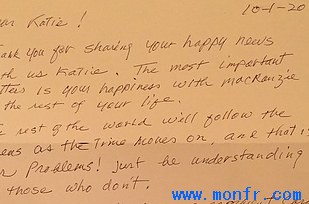 ear Katie! 10-1-20
ank you for sharing your happy news
th us Katie. The most important
tter is your happiness with MacKenzie
the rest of your life.
e rest of the world will follow the
eas as the Time moves on, and that is
r Problems! Just be understanding
those who don't.
www.monfr.com